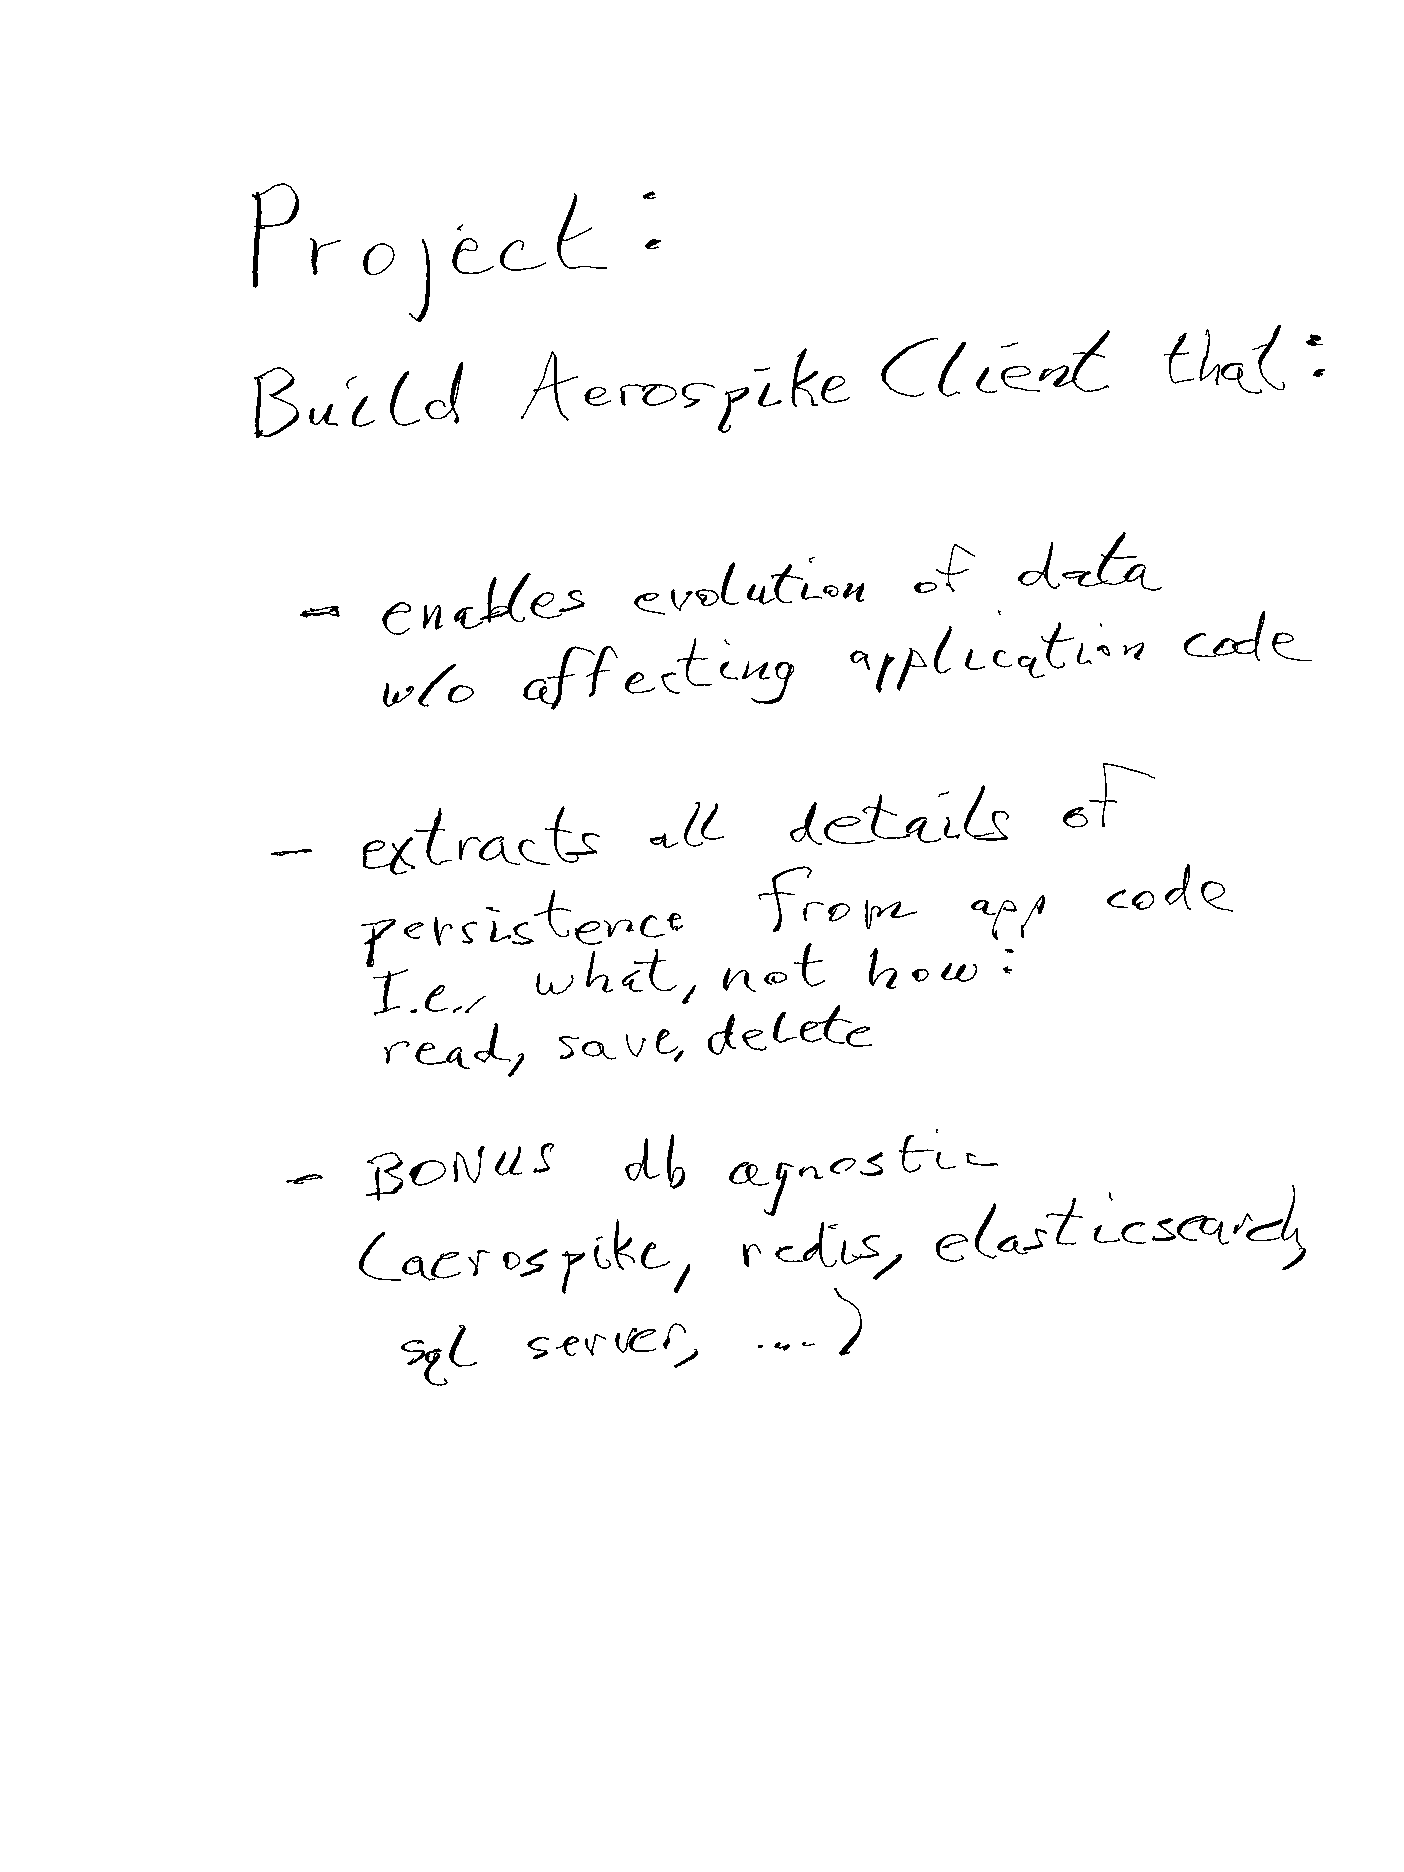 Project:
Build Aerospike Client that:
- enables evolution of data
w/o affecting application code
- extracts all details of
persistence from app code
I.e., what, not how:
read, save, delete
- BONUS db agnostic
(aerospike, redis, elasticsearch,
sql server, ....)